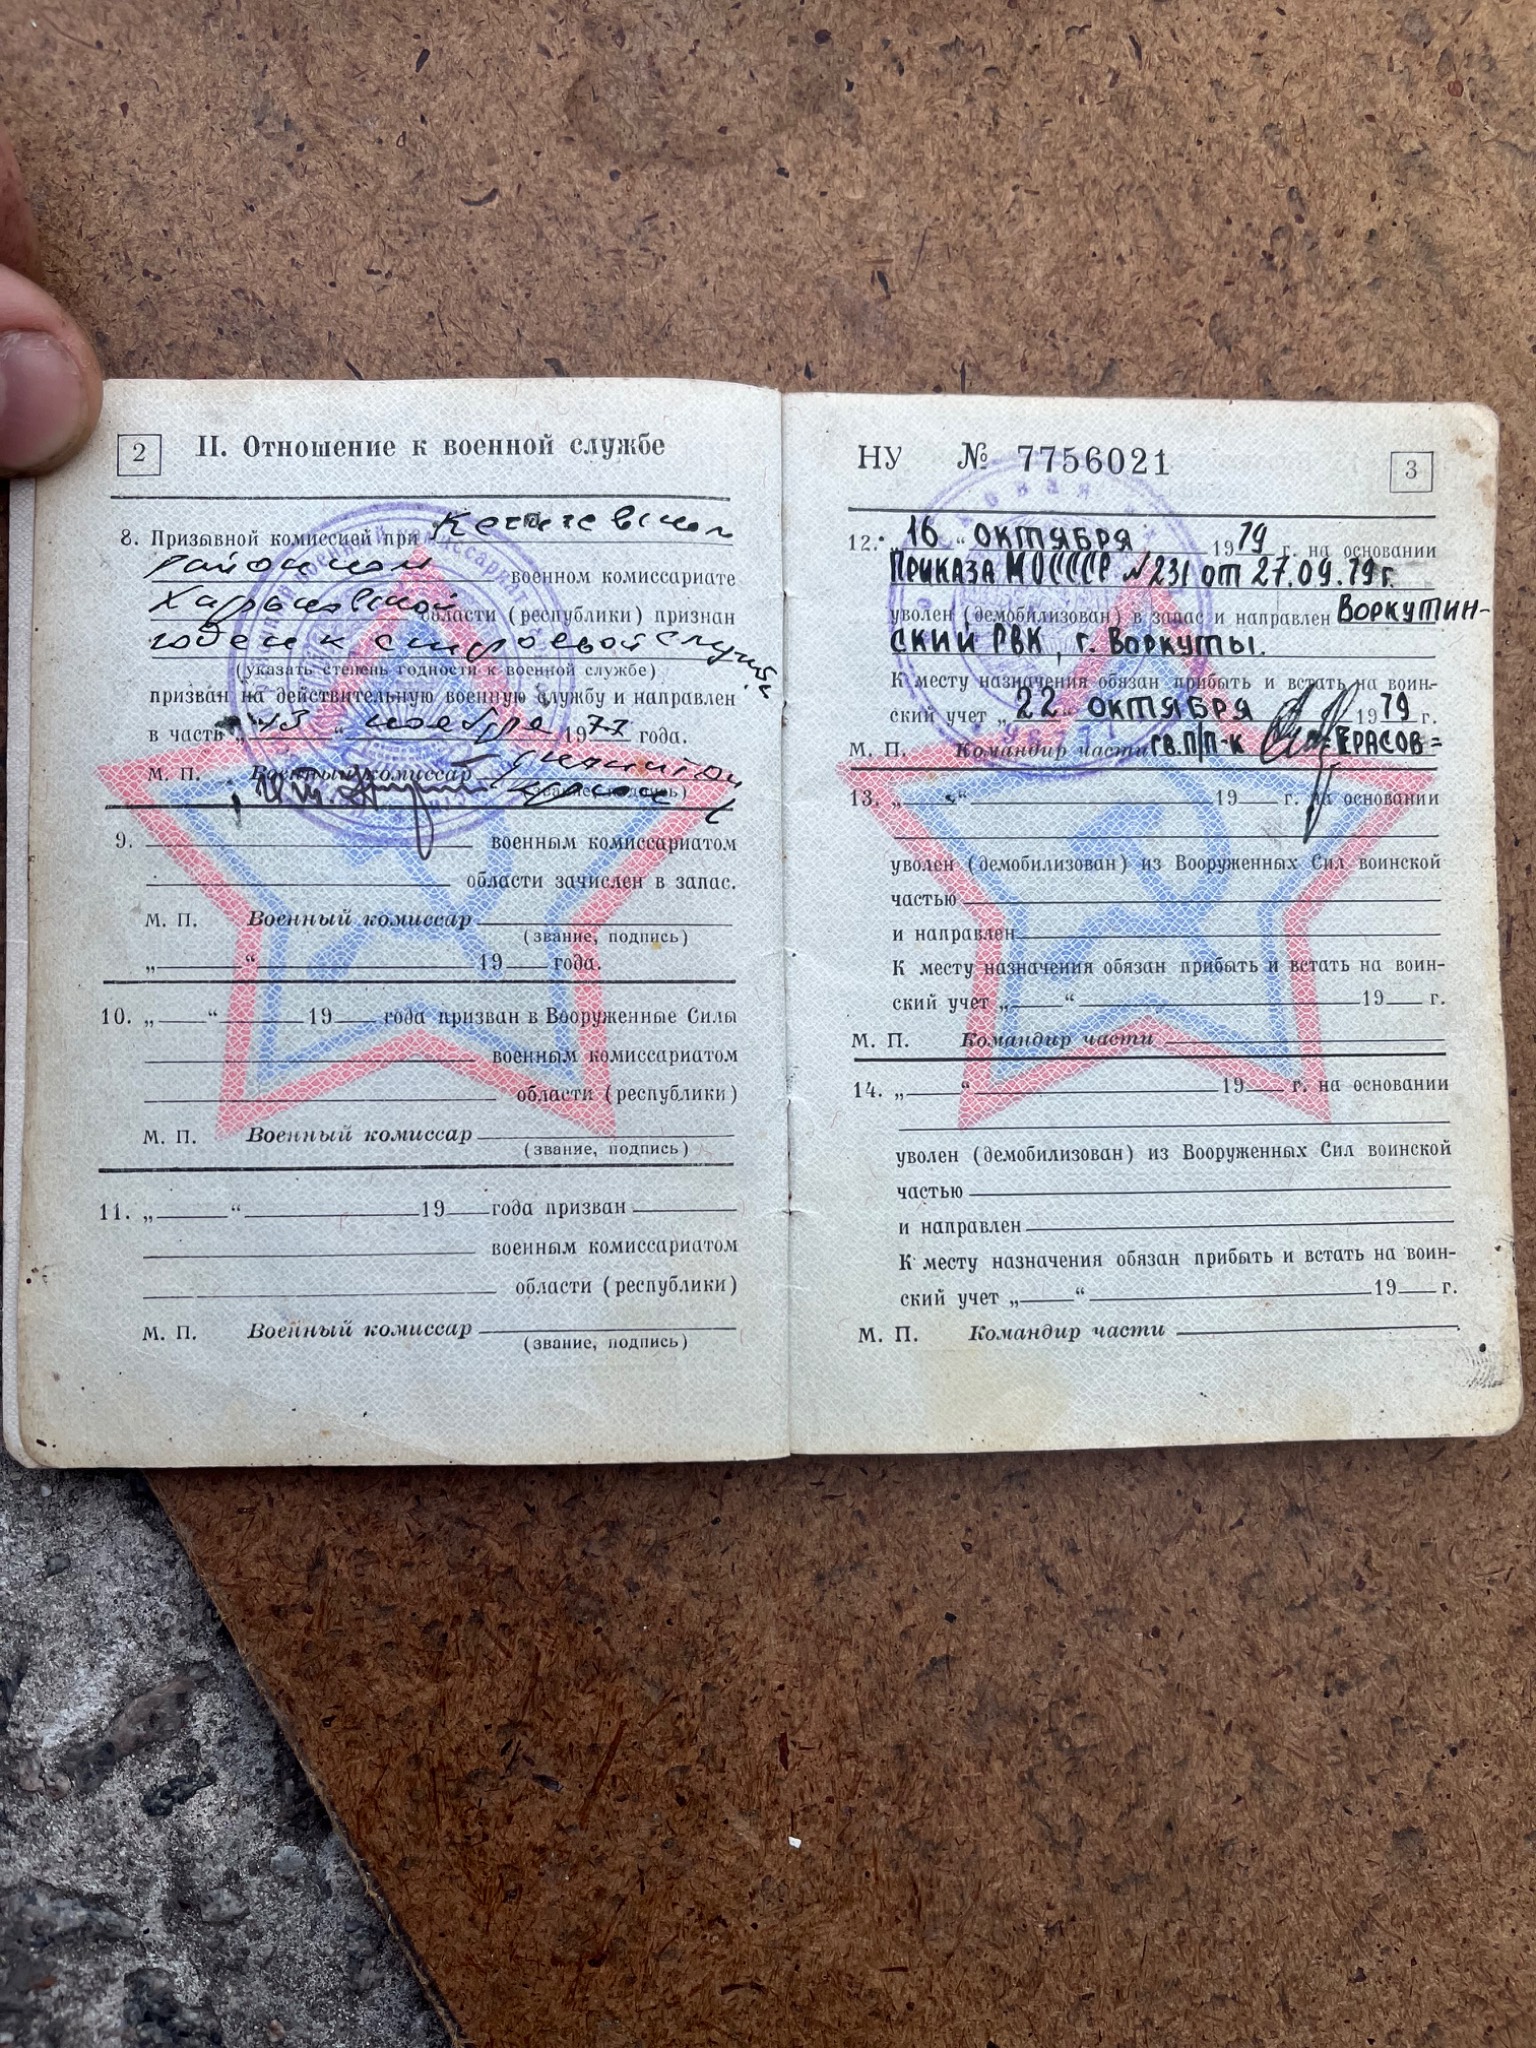 2
II. Отношение к военной службе
8. Призывной комиссией при Кегичевском
районном военном комиссариате
Харьковской области (республики) признан
годен к строевой службе
(указать степень годности к военной службе)
призван на действительную военную службу и направлен
в часть „13“ ноября 1977 года.
М. П. Военный комиссар
(звание, подпись)
9. военным комиссариатом
области зачислен в запас.
М. П. Военный комиссар
(звание, подпись)
„ “ 19 года.
10. „ “ 19 года призван в Вооруженные Силы
военным комиссариатом
области (республики)
М. П. Военный комиссар
(звание, подпись)
11. „ “ 19 года призван
военным комиссариатом
области (республики)
М. П. Военный комиссар
(звание, подпись)
НУ № 7756021
3
12. „16“ октября 1979 г. на основании
Приказа МО СССР №231 от 27.09.79г.
уволен (демобилизован) в запас и направлен Воркутин-
ский РВК, г. Воркуты.
К месту назначения обязан прибыть и встать на воин-
ский учет „22“ октября 1979 г.
М. П. Командир части гв. п/п-к ЕРАСОВ=
13. „ “ 19 г. на основании
уволен (демобилизован) из Вооруженных Сил воинской
частью
и направлен
К месту назначения обязан прибыть и встать на воин-
ский учет „ “ 19 г.
М. П. Командир части
14. „ “ 19 г. на основании
уволен (демобилизован) из Вооруженных Сил воинской
частью
и направлен
К месту назначения обязан прибыть и встать на воин-
ский учет „ “ 19 г.
М. П. Командир части